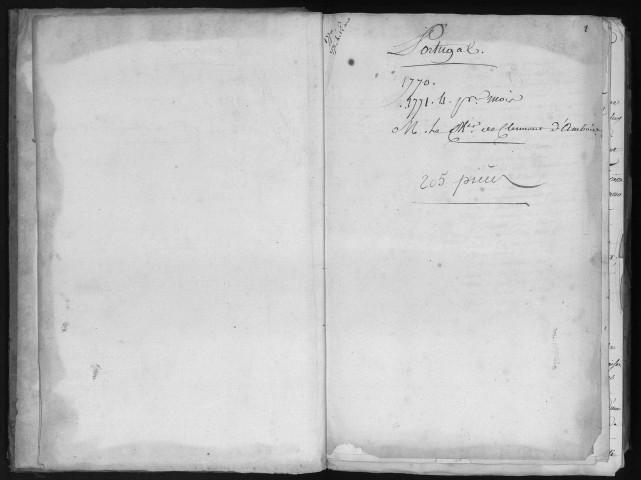 1
Portugal.
1770.
1771. 4. prs. mois
M. Le Mis. de Clermont d'Amboise
205 pièces